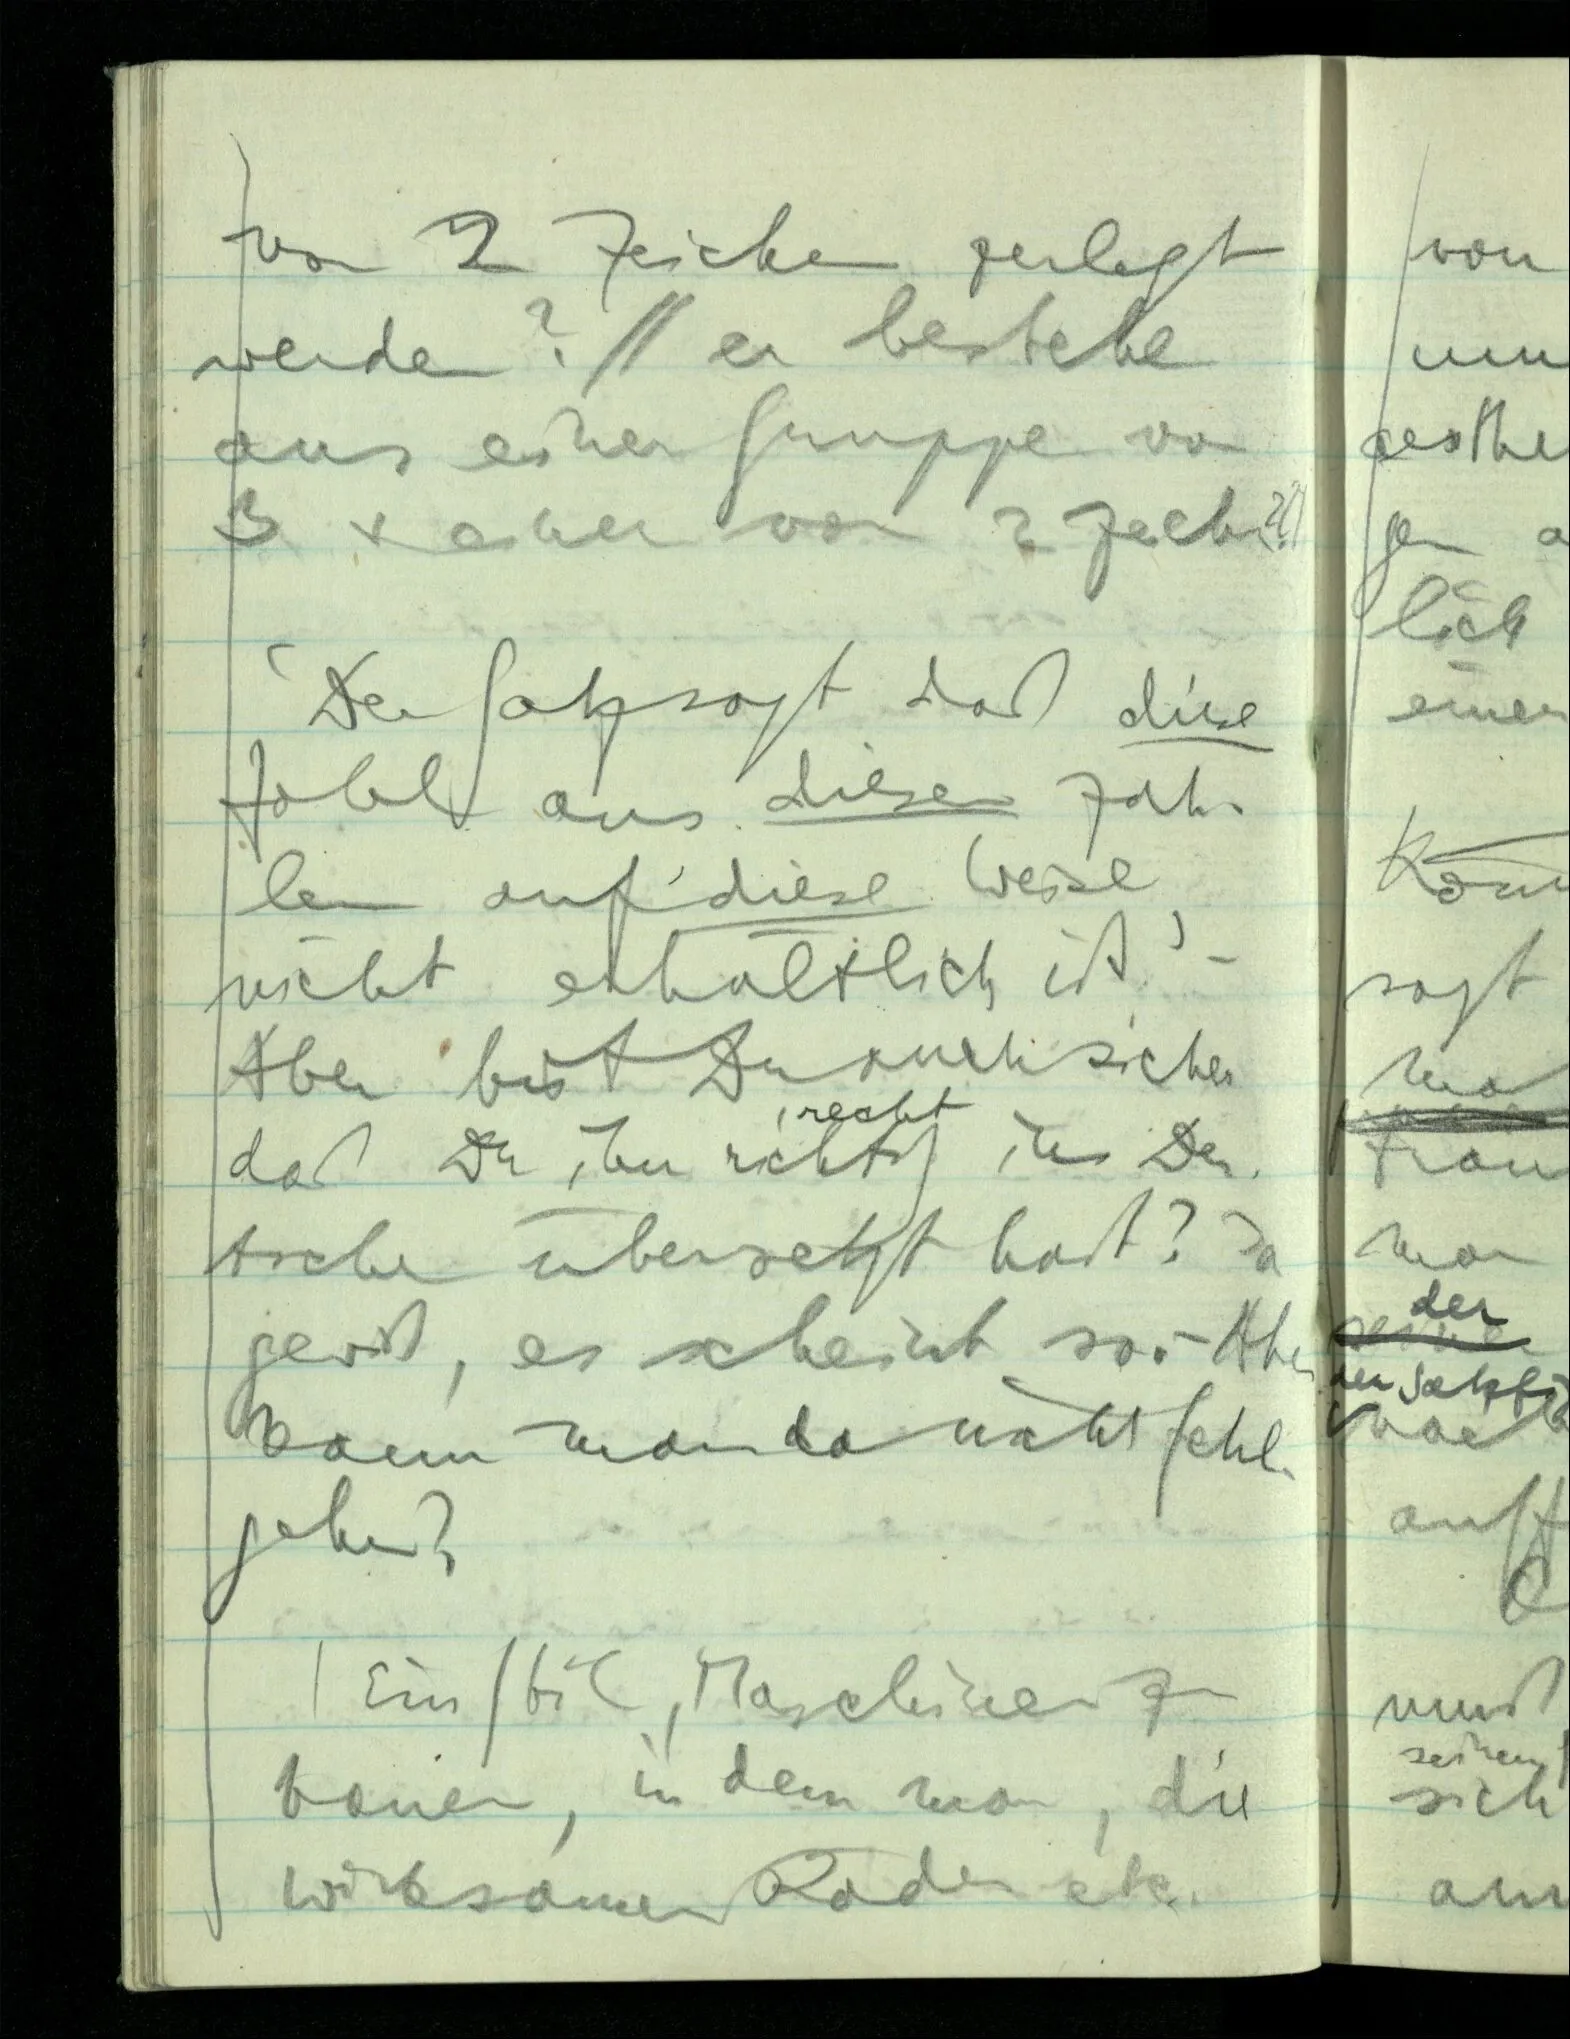 von 2 Zeichen zerlegt
werden? // er bestehe
aus einer Gruppe von
3 & einer von 2 Zeichen?!)
'Der Satz sagt daß diese
Zahl aus diesen Zah-
len auf diese Weise
nicht erhältlich ist.' –
Aber bist Du auch sicher
recht
daß Du ihn richtig ins Deu-
tsche übersetzt hast? Ja
gewiß, es scheint so. – Aber
kann man da nicht fehl-
gehen?
| Ein Stil, Maschinen zu
bauen, in dem man, die
wirksamen Räder etc.
von
nun
aesthe
gen a
lich
einer
Könn
sagt
man
man
der
seine
der Satz
nach
auff
muß
seinem
sich